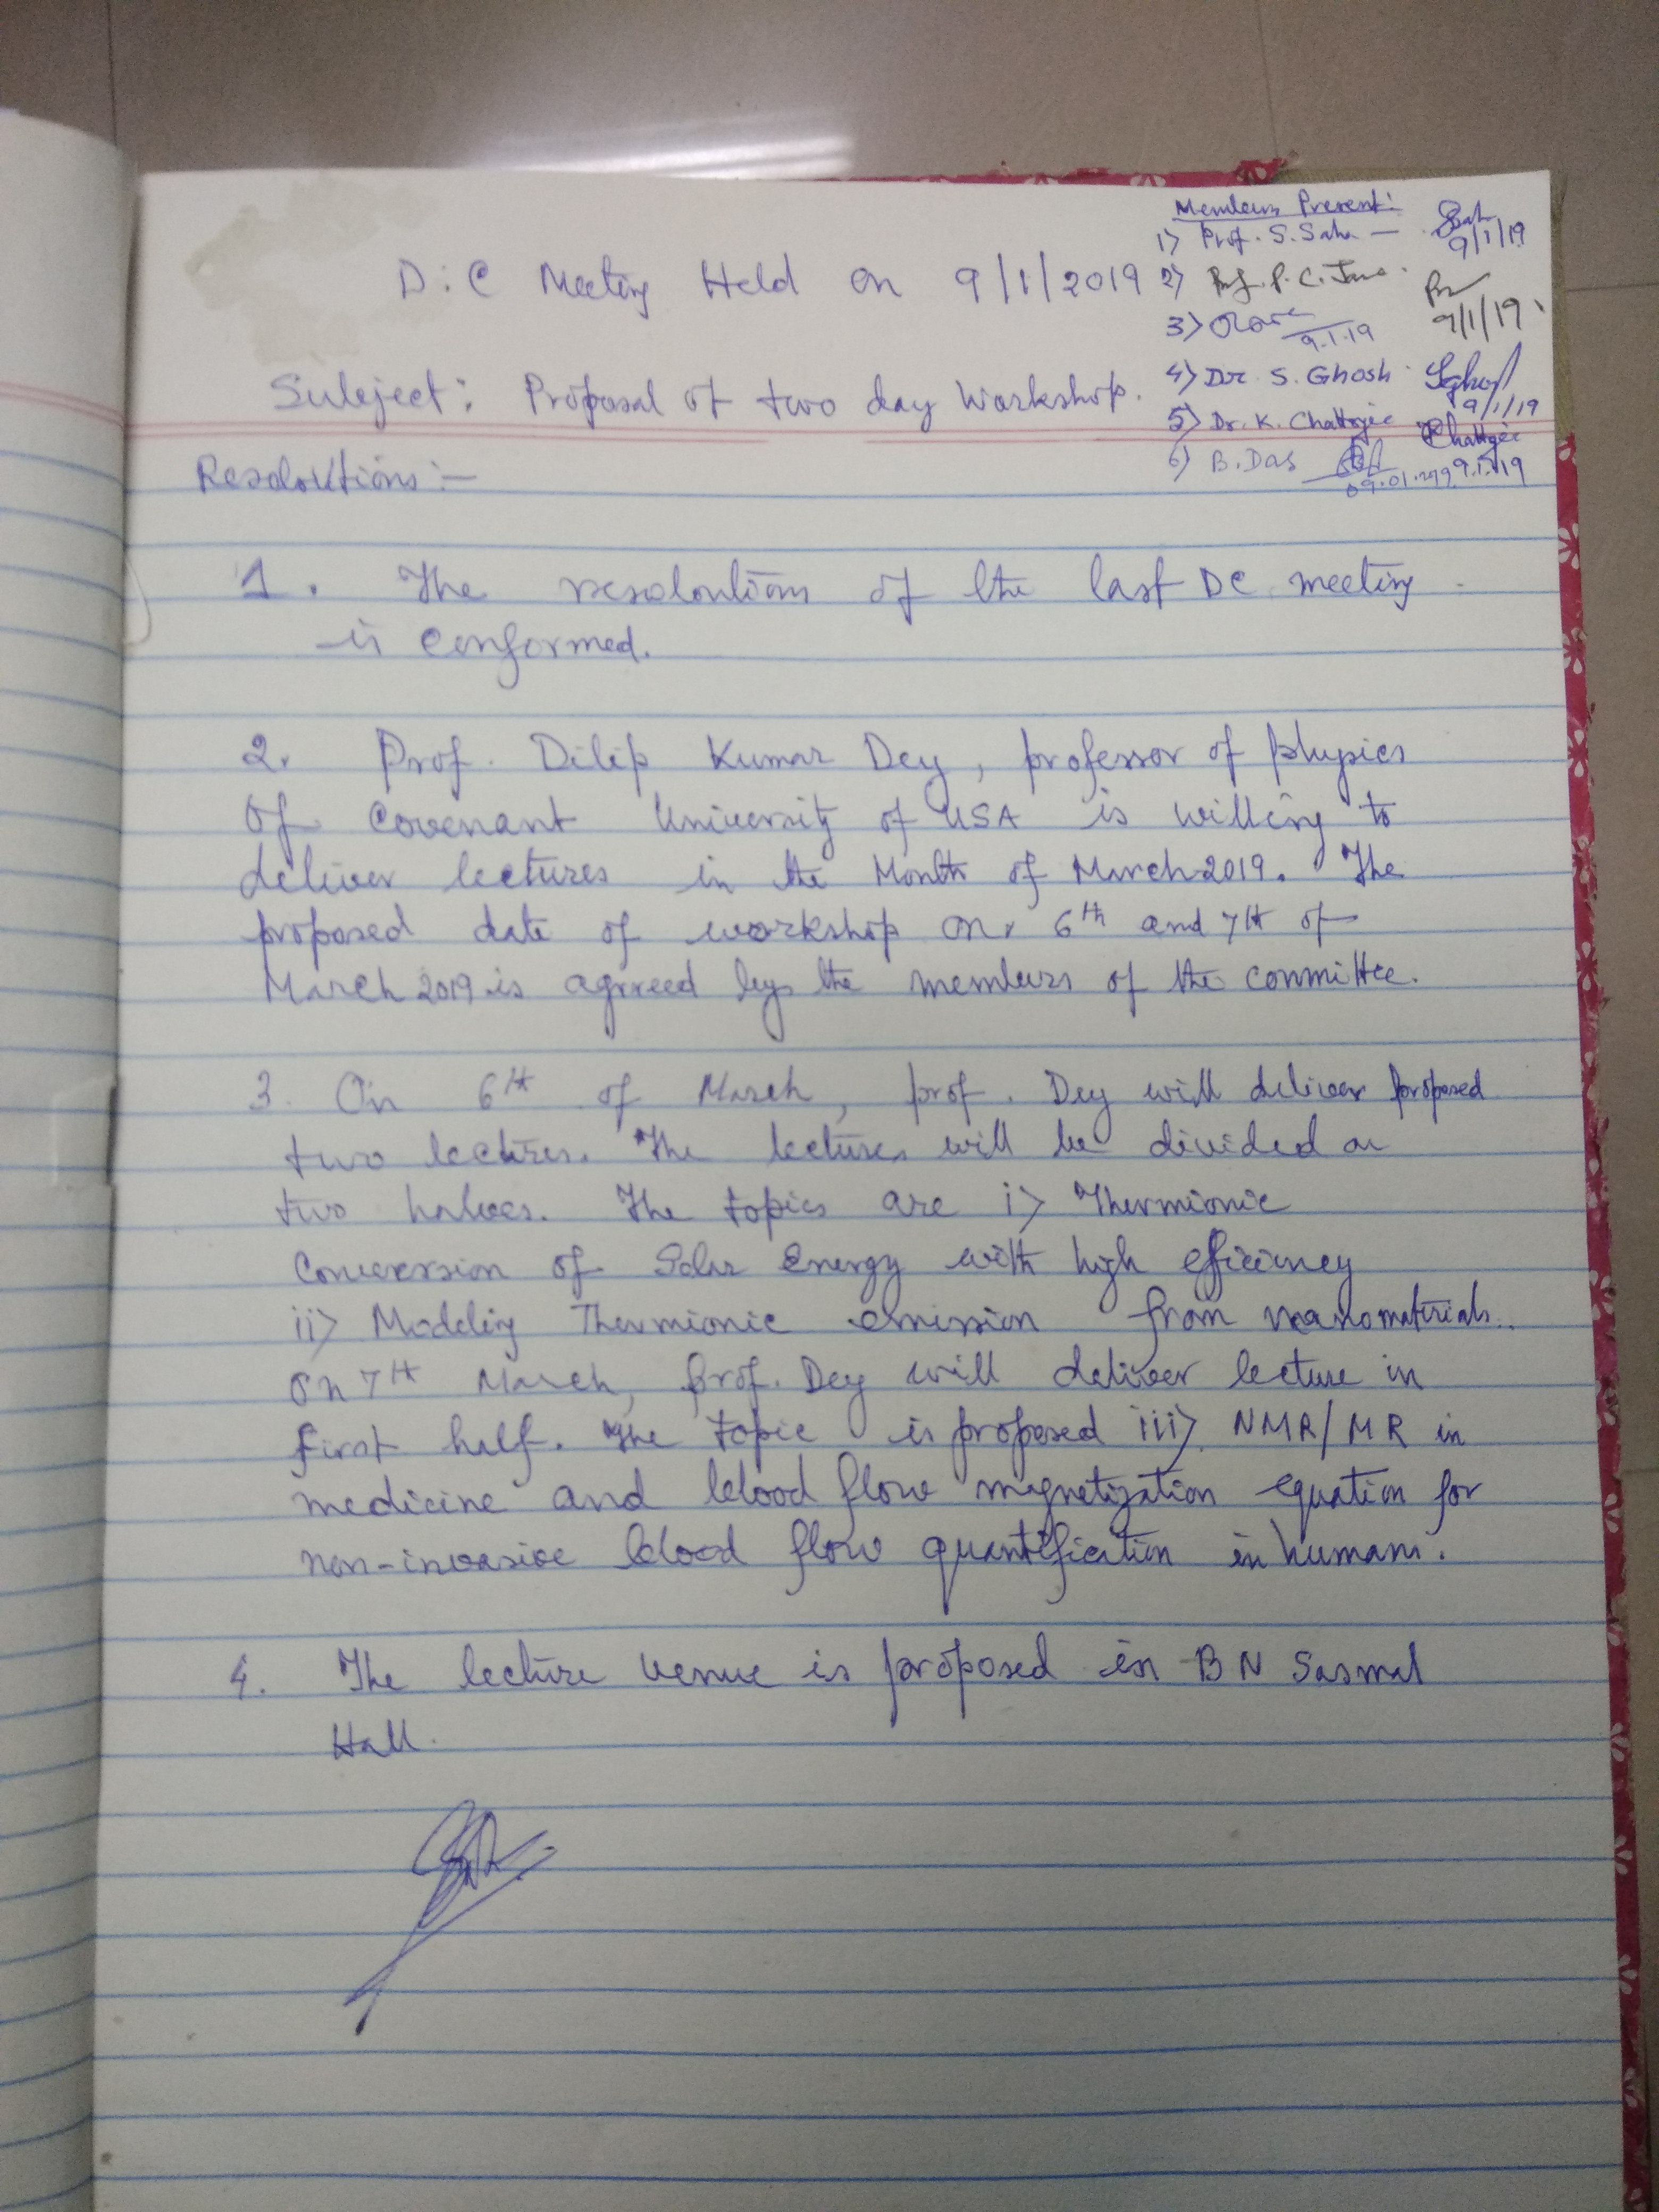 Members Present:
1) Prof. S. Saha — 9/1/19
D.C Meeting Held on 9/1/2019
2) Prof. P. C. Jana. 9/1/19
3) 9.1.19
Subject: Proposal of two day workshop.
4) Dr. S. Ghosh 9/1/19
5) Dr. K. Chatterjee KChatterjee 9.1.19
6) B. Das
Resoloutions:-
1. The resoloutions of the last DC meeting
is conformed.
2. Prof. Dilip Kumar Dey, professor of physics
of Covenant University of USA is willing to
deliver lectures in the Month of March 2019. The
proposed date of workshop on 6th and 7th of
March 2019 is agrreed by the members of the committee.
3. On 6th of March, prof. Dey will deliver proposed
two lectures. The lectures will be divided on
two halves. The topics are i) Thermionic
Conversion of Solar Energy with high efficiency
ii) Modeling Thermionic emission from nanomaterials..
On 7th March, prof. Dey will deliver lecture in
first half. The topic is proposed iii) NMR/MR in
medicine and blood flow magnetization equation for
non-invasive blood flow quantification in humans.
4. The lecture venue is proposed in BN Sasmal
Hall.